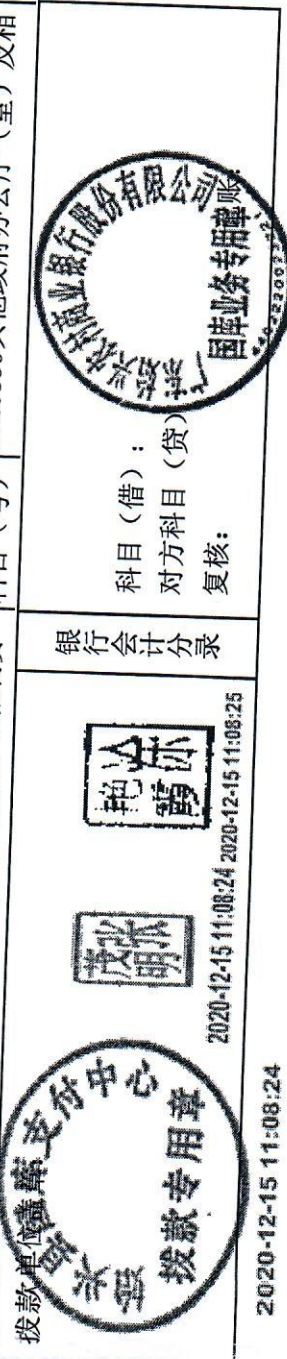 拨款单位盖章
始兴县国库支付中心
拨款专用章
张茂明
2020-12-15 11:08:24
2020-12-15 11:08:24
2020-12-15 11:08:25
银行会计分录
科目（借）：
对方科目（贷）
复核：
账：
广东始兴农村商业银行股份有限公司
国库业务专用章